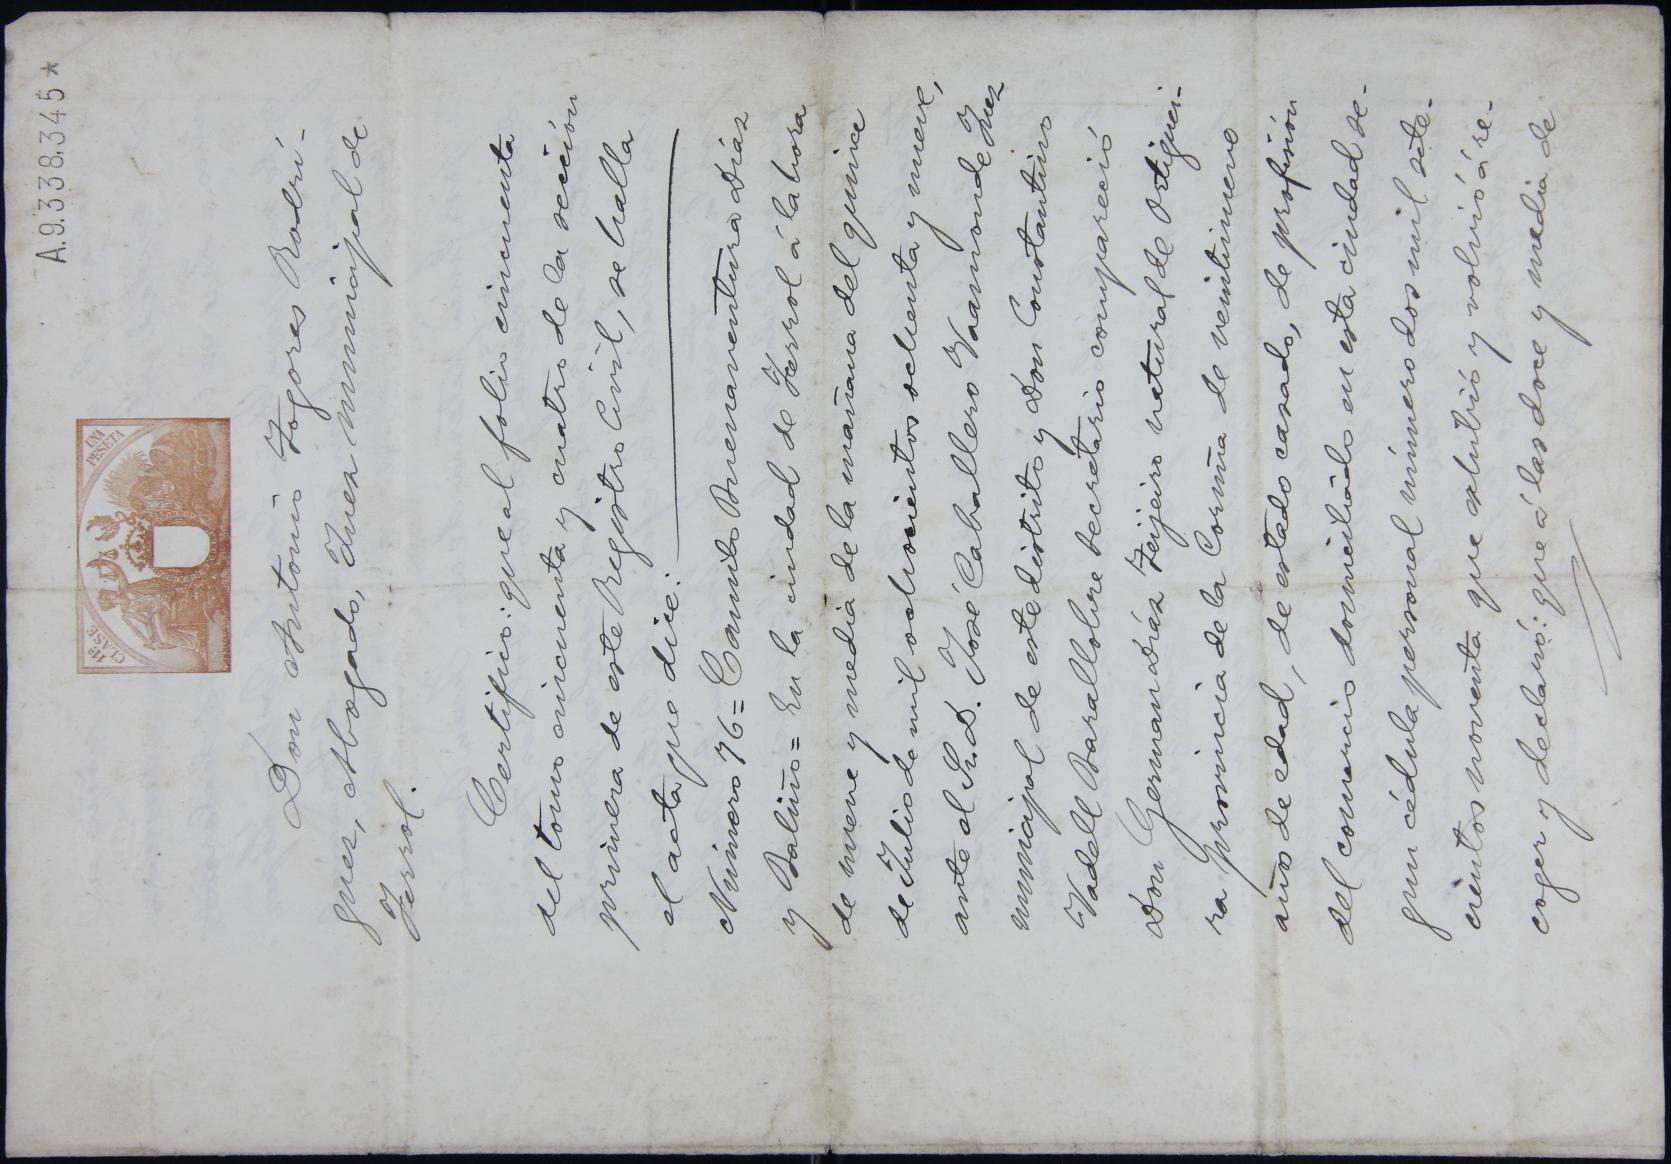 A.9.338.345*
11ª CLASE
UNA PESETA
Don Antonio Togores Rodrí-
guez, Abogado, Juez municipal de
Ferrol.
Certifico: que al folio cincuenta
del tomo cincuenta y cuatro de la sección
primera de este Registro Civil, se halla
el acta que dice:
Número 76 = Camilo Buenaventura Díaz
y Baliño = En la ciudad de Ferrol á la hora
de nueve y media de la mañana del quince
de Julio de mil ochocientos ochenta y nueve,
ante el Sr. D. José Caballero Vaamonde Juez
municipal de este distrito y Don Constantino
Vadell Barallobre Secretario compareció
Don German Díaz Teijeiro natural de Ortiguei-
ra provincia de la Coruña de veintinueve
años de edad, de estado casado, de profisión
del comercio domiciliado en esta ciudad se-
gun cédula personal número dos mil sete-
cientos noventa que exhibió y volvió á re-
coger y declaró: que á las doce y media de